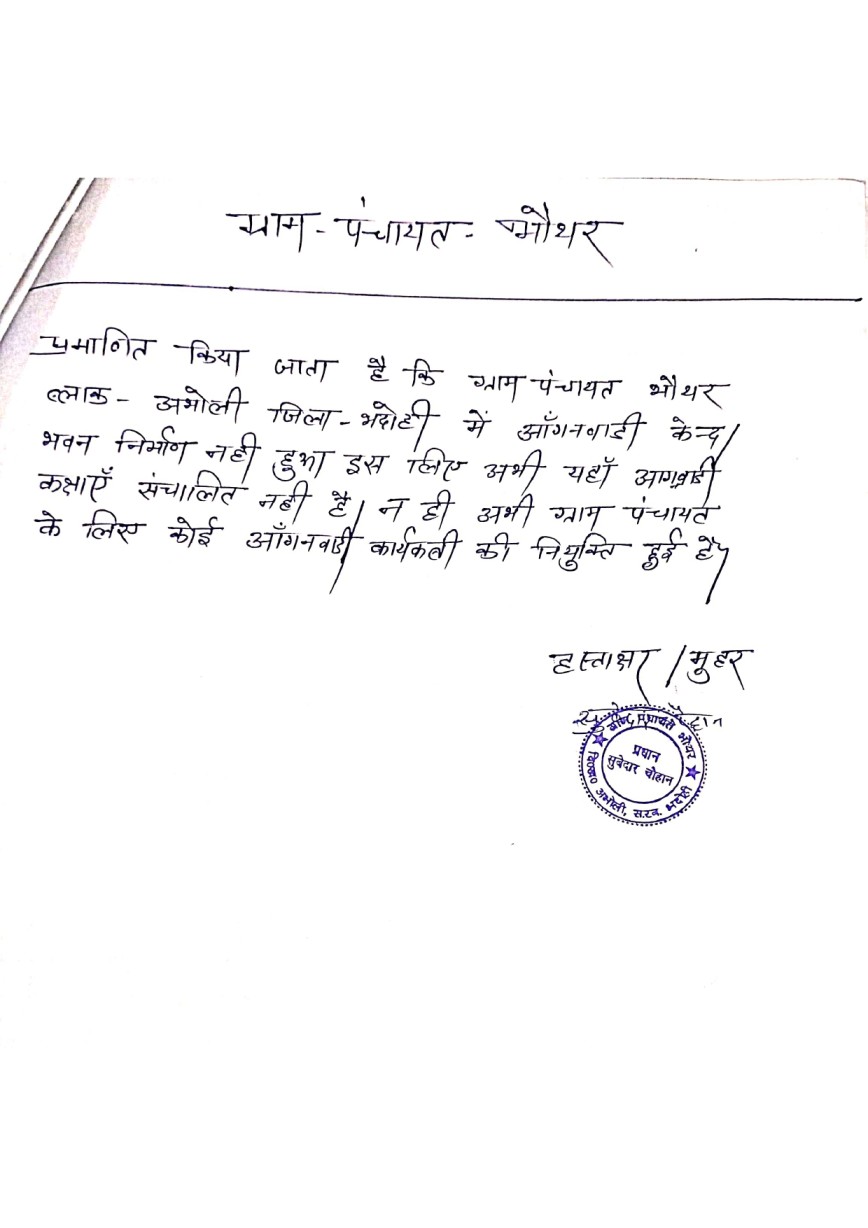 ग्राम - पंचायत - भौथर
प्रमाणित किया जाता है कि ग्राम पंचायत भौथर
ब्लाक - अभोली जिला - भदोही में आँगनवाडी केन्द्र
भवन निर्माण नही हुआ इस लिए अभी यहाँ आगनवाडी
कक्षाएँ संचालित नही है। न ही अभी ग्राम पंचायत
के लिए कोई आँगनवाडी कार्यकर्ती की नियुक्ति हुई है।
हस्ताक्षर / मुहर
पंचायत भौथर
प्रधान
सुबेदार चौहान
अभोली, स.र.व. भदोही